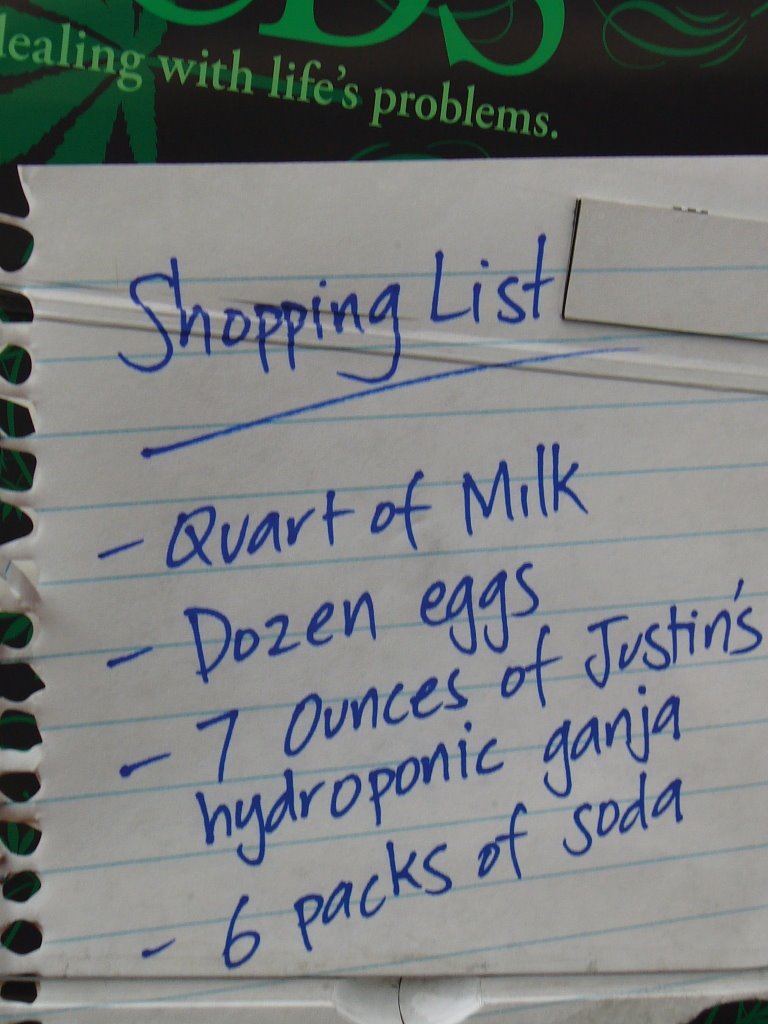 DS
dealing with life's problems.
Shopping List
- Quart of Milk
- Dozen eggs
- 7 Ounces of Justin's
hydroponic ganja
- 6 packs of soda